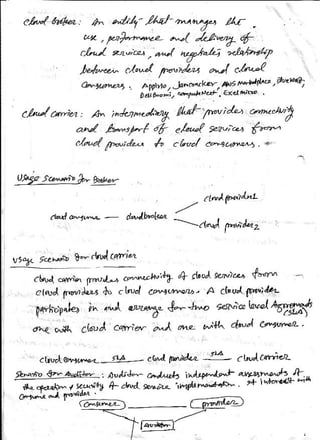 cloud broker : An entity that manages the
use, performance and delivery of
cloud services, and negotiates relationship
between cloud providers and cloud
consumers. Appirio, Jamcracker, AWS marketplace,
Dell Boomi, ComputeNext, Excel micro.
cloud carrier : An intermediary that provides connectivity
and transport of cloud services from
cloud providers to cloud consumers.
Usage Scenario for Broker
cloud provider1
cloud consumer — cloud broker
cloud provider2
Usage Scenario for cloud carrier
cloud carrier provides connectivity of cloud services from
cloud providers to cloud consumers. A cloud provider
participates in and arrange for two service level Agreements
(SLA)
one with cloud carrier and one with cloud consumer.
cloud consumer SLA cloud provider SLA cloud carrier
Scenario for Auditor : Auditor conducts independent assessments of
the operation & security of cloud service implementation. It interact with
consumer and provider.
consumer provider
Auditor